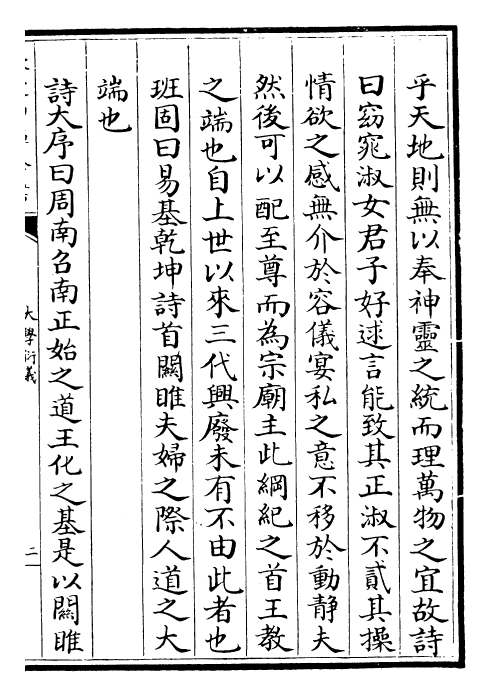 乎天地則無以奉神靈之統而理萬物之宜故詩
曰窈窕淑女君子好逑言能致其正淑不貳其操
情欲之感無介於容儀宴私之意不移於動靜夫
然後可以配至尊而為宗廟主此綱紀之首王教
之端也自上世以來三代興廢未有不由此者也
班固曰易基乾坤詩首關雎夫婦之際人道之大
端也
詩大序曰周南召南正始之道王化之基是以關雎
大學衍義
二